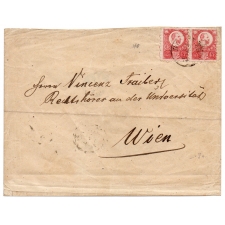 Herrn Vincenz Freiberg
Rechtshörer an der Universität
Wien